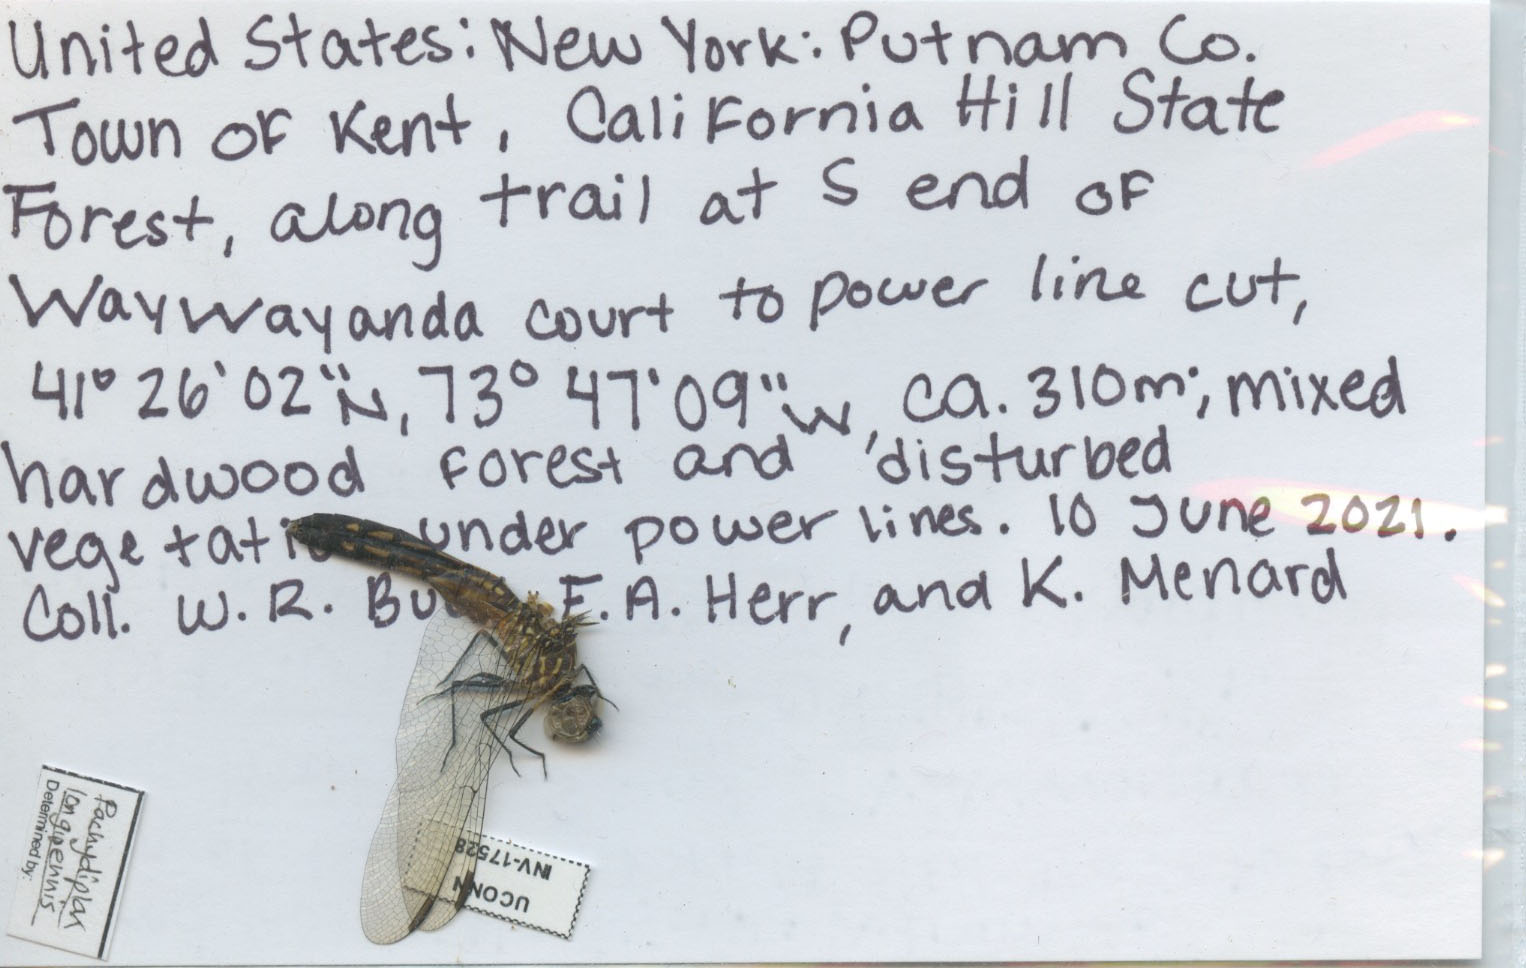 United States: New York: Putnam Co.
Town of Kent, California Hill State
Forest, along trail at S end of
Waywayanda court to power line cut,
41° 26' 02"N, 73° 47' 09"W, ca. 310m; mixed
hardwood forest and disturbed
under power lines. 10 June 2021.
Coll. W. R. E. A. Herr, and K. Menard
Pachydiplax
longipennis
Determined by:
UCONN
INV-17528